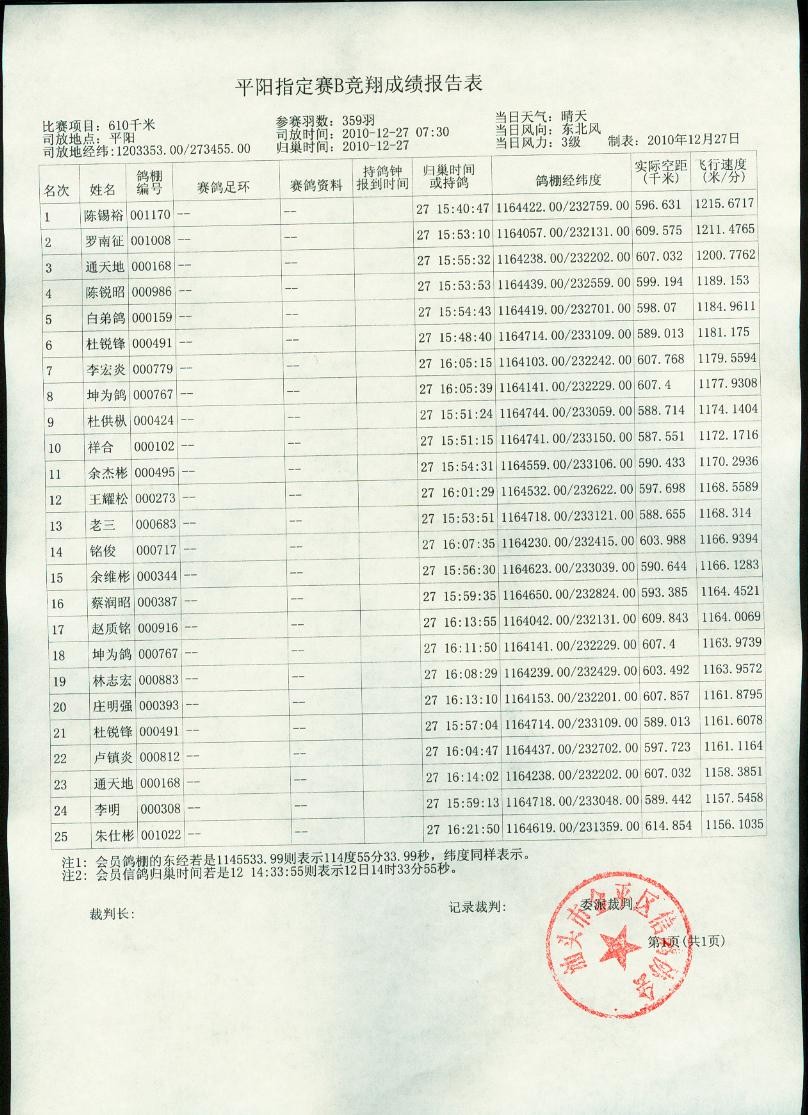 平阳指定赛B竞翔成绩报告表
比赛项目: 610千米 参赛羽数: 359羽 当日天气: 晴天
司放地点: 平阳 司放时间: 2010-12-27 07:30 当日风向: 东北风
司放地经纬:1203353.00/273455.00 归巢时间: 2010-12-27 当日风力: 3级 制表: 2010年12月27日
名次 姓名 鸽棚编号 赛鸽足环 赛鸽资料 持鸽钟报到时间 归巢时间或持鸽 鸽棚经纬度 实际空距(千米) 飞行速度(米/分)
1 陈锡裕 001170 -- -- 27 15:40:47 1164422.00/232759.00 596.631 1215.6717
2 罗南征 001008 -- -- 27 15:53:10 1164057.00/232131.00 609.575 1211.4765
3 通天地 000168 -- -- 27 15:55:32 1164238.00/232202.00 607.032 1200.7762
4 陈锐昭 000986 -- -- 27 15:53:53 1164439.00/232559.00 599.194 1189.153
5 白弟鸽 000159 -- -- 27 15:54:43 1164419.00/232701.00 598.07 1184.9611
6 杜锐锋 000491 -- -- 27 15:48:40 1164714.00/233109.00 589.013 1181.175
7 李宏炎 000779 -- -- 27 16:05:15 1164103.00/232242.00 607.768 1179.5594
8 坤为鸽 000767 -- -- 27 16:05:39 1164141.00/232229.00 607.4 1177.9308
9 杜供枞 000424 -- -- 27 15:51:24 1164744.00/233059.00 588.714 1174.1404
10 祥合 000102 -- -- 27 15:51:15 1164741.00/233150.00 587.551 1172.1716
11 余杰彬 000495 -- -- 27 15:54:31 1164559.00/233106.00 590.433 1170.2936
12 王耀松 000273 -- -- 27 16:01:29 1164532.00/232622.00 597.698 1168.5589
13 老三 000683 -- -- 27 15:53:51 1164718.00/233121.00 588.655 1168.314
14 铭俊 000717 -- -- 27 16:07:35 1164230.00/232415.00 603.988 1166.9394
15 余维彬 000344 -- -- 27 15:56:30 1164623.00/233039.00 590.644 1166.1283
16 蔡润昭 000387 -- -- 27 15:59:35 1164650.00/232824.00 593.385 1164.4521
17 赵质铭 000916 -- -- 27 16:13:55 1164042.00/232131.00 609.843 1164.0069
18 坤为鸽 000767 -- -- 27 16:11:50 1164141.00/232229.00 607.4 1163.9739
19 林志宏 000883 -- -- 27 16:08:29 1164239.00/232429.00 603.492 1163.9572
20 庄明强 000393 -- -- 27 16:13:10 1164153.00/232201.00 607.857 1161.8795
21 杜锐锋 000491 -- -- 27 15:57:04 1164714.00/233109.00 589.013 1161.6078
22 卢镇炎 000812 -- -- 27 16:04:47 1164437.00/232702.00 597.723 1161.1164
23 通天地 000168 -- -- 27 16:14:02 1164238.00/232202.00 607.032 1158.3851
24 李明 000308 -- -- 27 15:59:13 1164718.00/233048.00 589.442 1157.5458
25 朱仕彬 001022 -- -- 27 16:21:50 1164619.00/231359.00 614.854 1156.1035
注1: 会员鸽棚的东经若是1145533.99则表示114度55分33.99秒，纬度同样表示。
注2: 会员信鸽归巢时间若是12 14:33:55则表示12日14时33分55秒。
裁判长: 记录裁判: 委派裁判:
第1页(共1页)
汕头市金平区信鸽协会